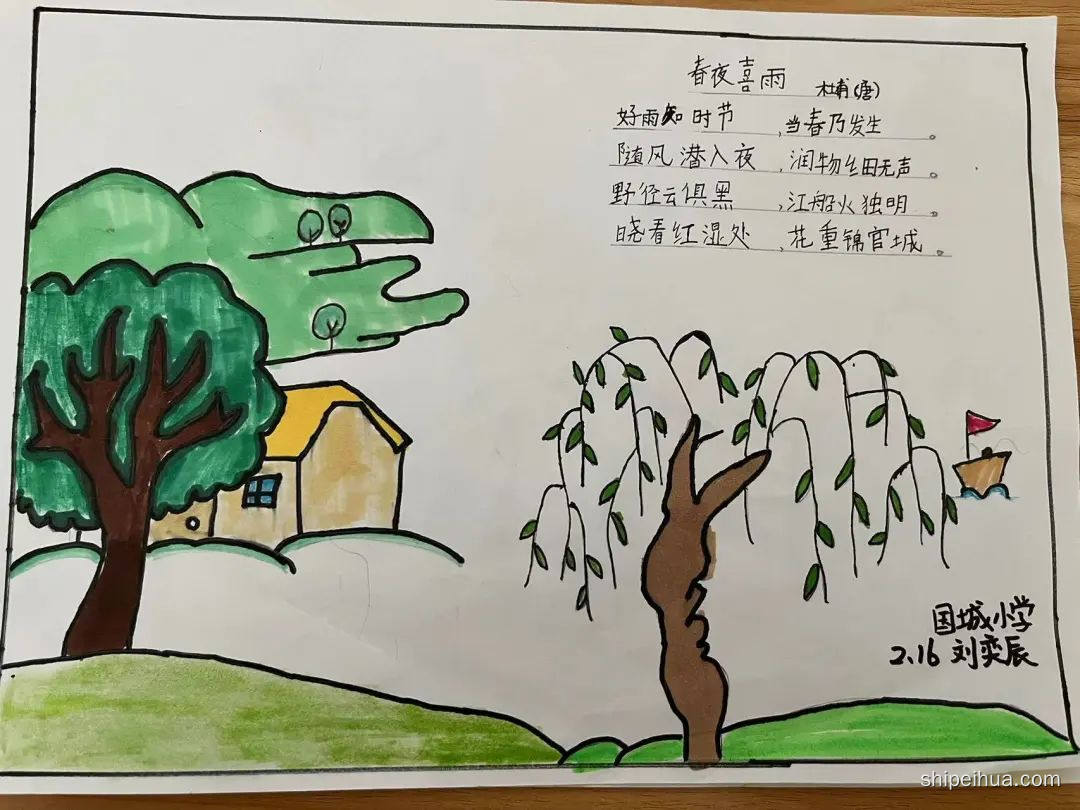 春夜喜雨
杜甫(唐)
好雨知时节,当春乃发生。
随风潜入夜,润物丝田无声。
野径云俱黑,江船火独明。
晓看红湿处,花重锦官城。
国城小学
2.16 刘奕辰
shipeihua.com